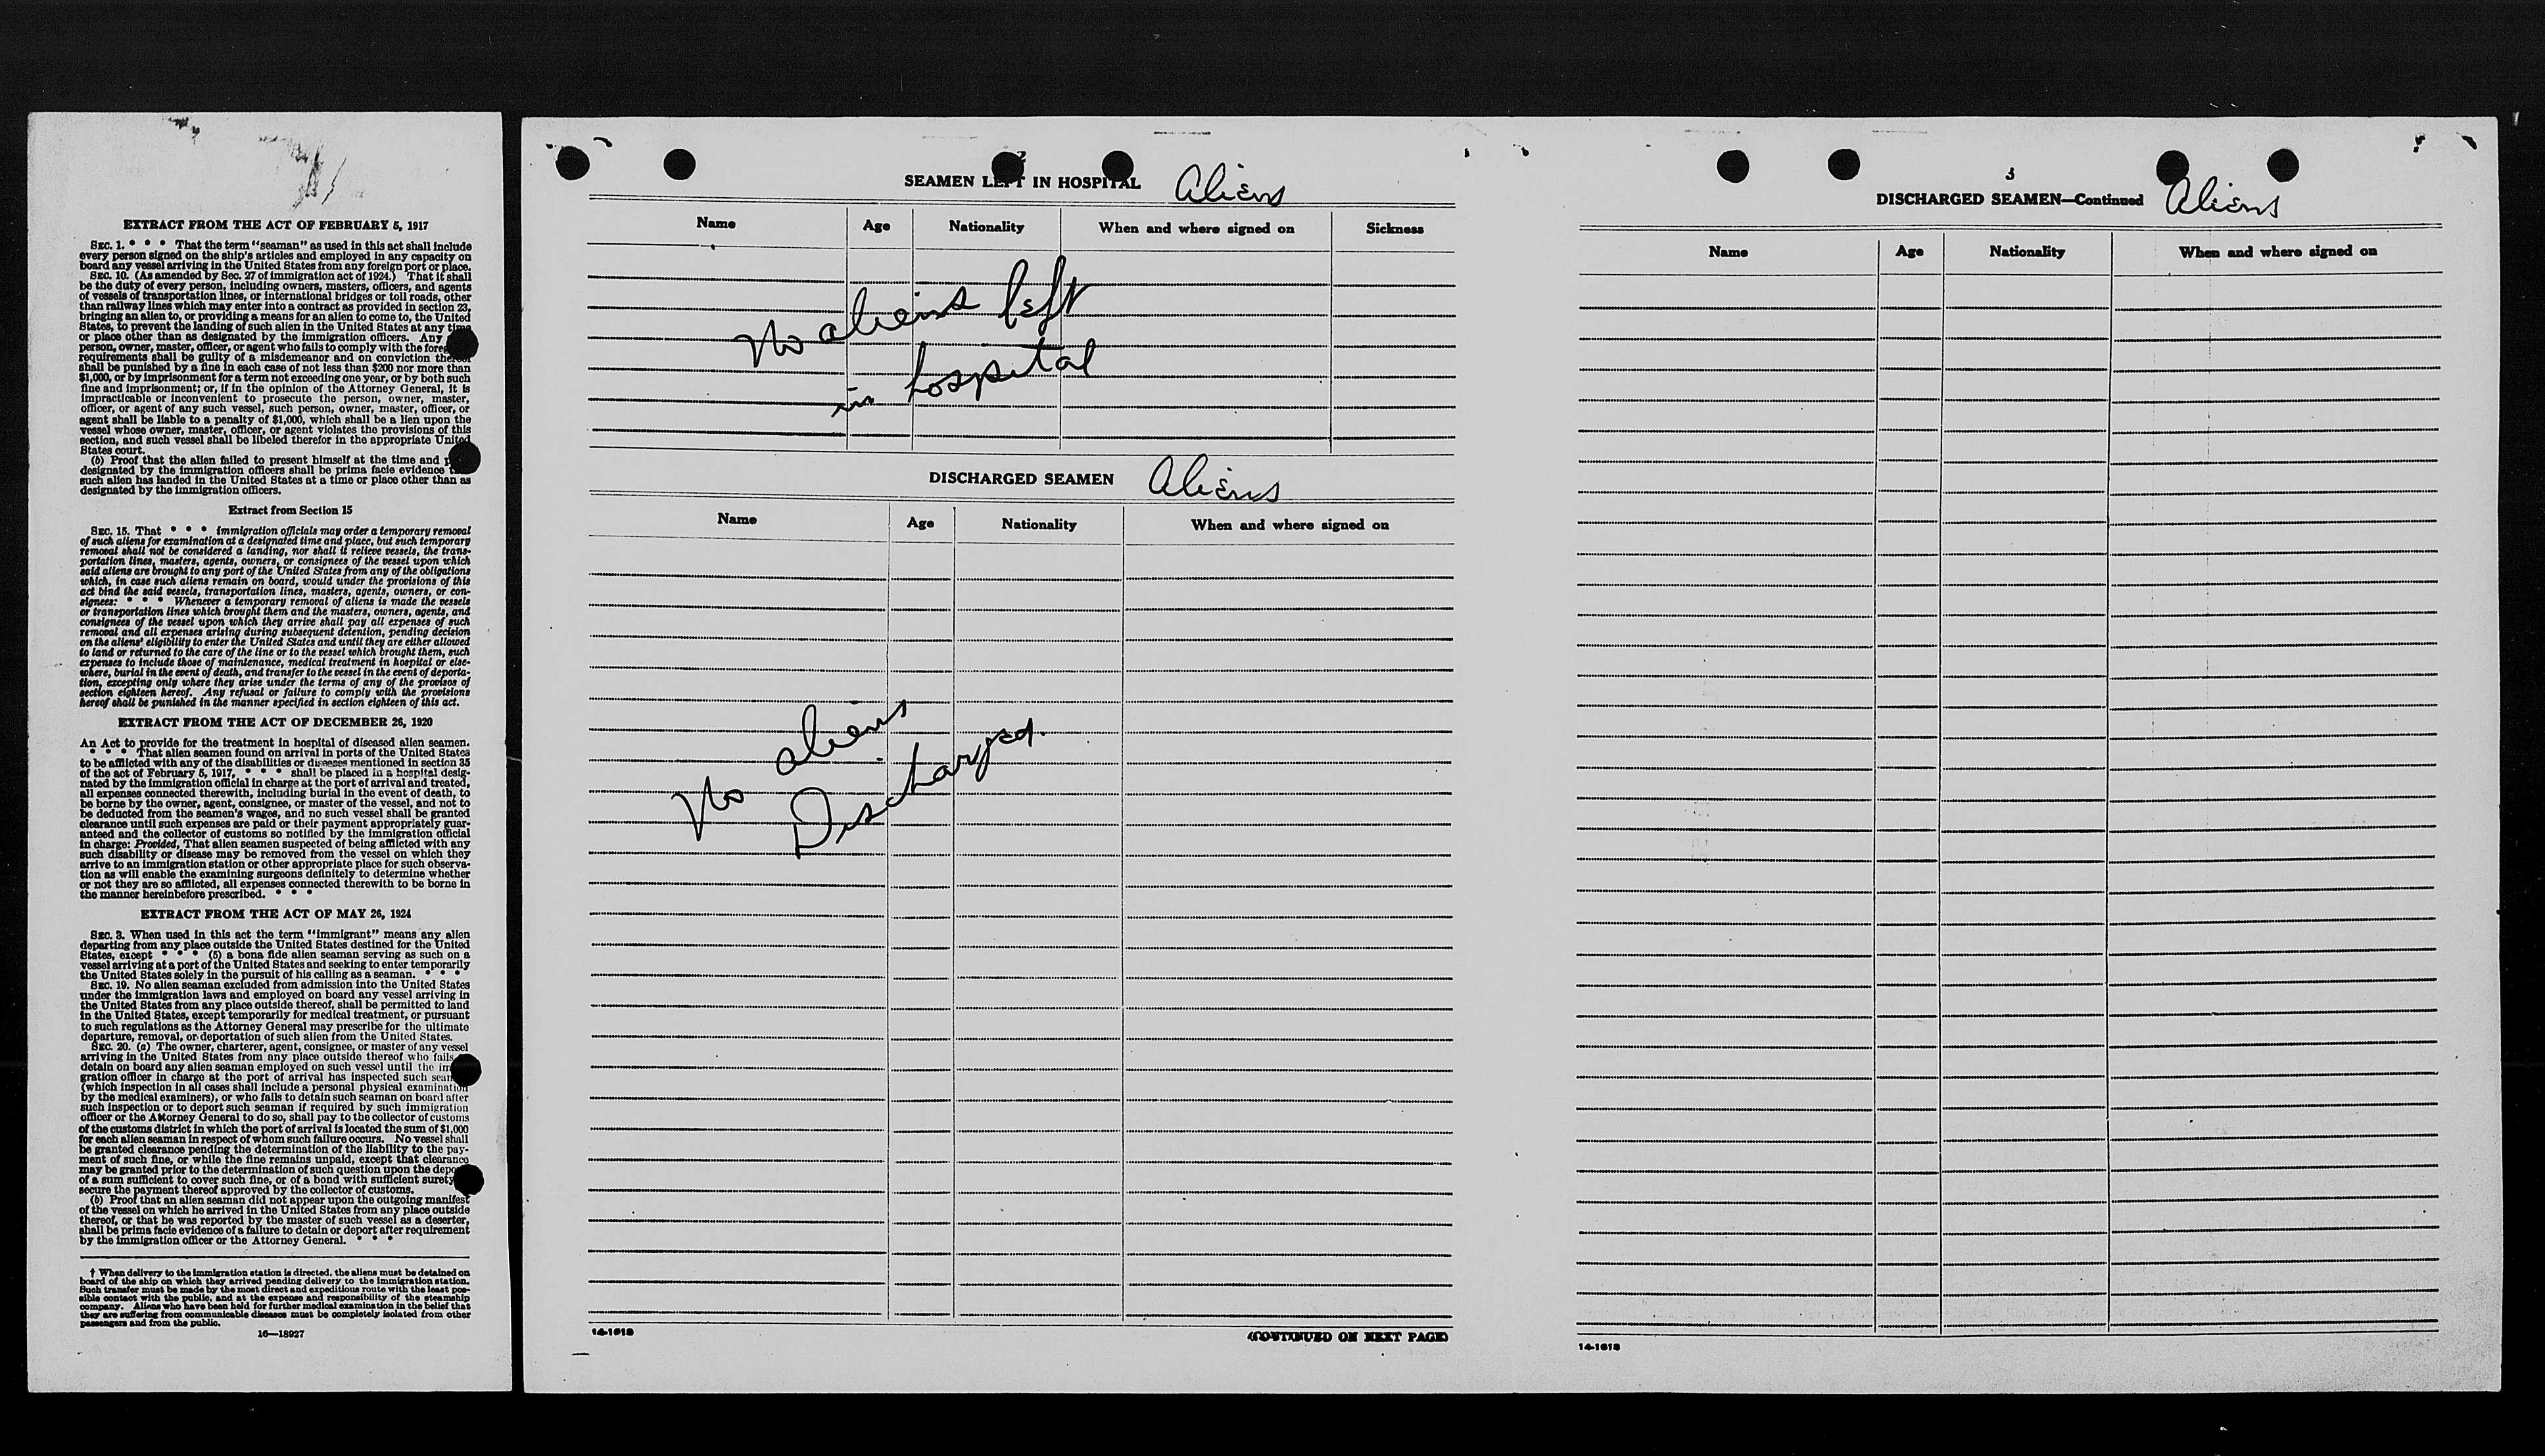 EXTRACT FROM THE ACT OF FEBRUARY 5, 1917
SEC. 1. * * * That the term "seaman" as used in this act shall include
every person signed on the ship's articles and employed in any capacity on
board any vessel arriving in the United States from any foreign port or place.
SEC. 10. (As amended by Sec. 27 of immigration act of 1924.) That it shall
be the duty of every person, including owners, masters, officers, and agents
of vessels of transportation lines, or international bridges or toll roads, other
than railway lines which may enter into a contract as provided in section 23,
bringing an alien to, or providing a means for an alien to come to, the United
States, to prevent the landing of such alien in the United States at any time
or place other than as designated by the immigration officers. Any
person, owner, master, officer, or agent who fails to comply with the
requirements shall be guilty of a misdemeanor and on conviction thereof
shall be punished by a fine in each case of not less than $200 nor more than
$1,000, or by imprisonment for a term not exceeding one year, or by both such
fine and imprisonment; or, if in the opinion of the Attorney General, it is
impracticable or inconvenient to prosecute the person, owner, master,
officer, or agent of any such vessel, such person, owner, master, officer, or
agent shall be liable to a penalty of $1,000, which shall be a lien upon the
vessel whose owner, master, officer, or agent violates the provisions of this
section, and such vessel shall be libeled therefor in the appropriate United
States court.
(b) Proof that the alien failed to present himself at the time and
designated by the immigration officers shall be prima facie evidence
such alien has landed in the United States at a time or place other than as
designated by the immigration officers.
Extract from Section 15
SEC. 15. That * * * immigration officials may order a temporary removal
of such aliens for examination at a designated time and place, but such temporary
removal shall not be considered a landing, nor shall it relieve vessels, the trans-
portation lines, masters, agents, owners, or consignees of the vessel upon which
said aliens are brought to any port of the United States from any of the obligations
which, in case such aliens remain on board, would under the provisions of this
act bind the said vessels, transportation lines, masters, agents, owners, or con-
signees: * * * Whenever a temporary removal of aliens is made the vessels
or transportation lines which brought them and the masters, owners, agents, and
consignees of the vessel upon which they arrive shall pay all expenses of such
removal and all expenses arising during subsequent detention, pending decision
on the aliens' eligibility to enter the United States and until they are either allowed
to land or returned to the care of the line or to the vessel which brought them, such
expenses to include those of maintenance, medical treatment in hospital or else-
where, burial in the event of death, and transfer to the vessel in the event of deporta-
tion, excepting only where they arise under the terms of any of the provisos of
section eighteen hereof. Any refusal or failure to comply with the provisions
hereof shall be punished in the manner specified in section eighteen of this act.
EXTRACT FROM THE ACT OF DECEMBER 26, 1920
An Act to provide for the treatment in hospital of diseased alien seamen.
* * * That alien seamen found on arrival in ports of the United States
to be afflicted with any of the disabilities or diseases mentioned in section 35
of the act of February 5, 1917, * * * shall be placed in a hospital desig-
nated by the immigration official in charge at the port of arrival and treated,
all expenses connected therewith, including burial in the event of death, to
be borne by the owner, agent, consignee, or master of the vessel, and not to
be deducted from the seamen's wages, and no such vessel shall be granted
clearance until such expenses are paid or their payment appropriately guar-
anteed and the collector of customs so notified by the immigration official
in charge: Provided, That alien seamen suspected of being afflicted with any
such disability or disease may be removed from the vessel on which they
arrive to an immigration station or other appropriate place for such observa-
tion as will enable the examining surgeons definitely to determine whether
or not they are so afflicted, all expenses connected therewith to be borne in
the manner hereinbefore prescribed. * * *
EXTRACT FROM THE ACT OF MAY 26, 1924
SEC. 3. When used in this act the term "immigrant" means any alien
departing from any place outside the United States destined for the United
States, except * * * (5) a bona fide alien seaman serving as such on a
vessel arriving at a port of the United States and seeking to enter temporarily
the United States solely in the pursuit of his calling as a seaman. * * *
SEC. 19. No alien seaman excluded from admission into the United States
under the immigration laws and employed on board any vessel arriving in
the United States from any place outside thereof, shall be permitted to land
in the United States, except temporarily for medical treatment, or pursuant
to such regulations as the Attorney General may prescribe for the ultimate
departure, removal, or deportation of such alien from the United States.
SEC. 20. (a) The owner, charterer, agent, consignee, or master of any vessel
arriving in the United States from any place outside thereof who fails
detain on board any alien seaman employed on such vessel until the im
gration officer in charge at the port of arrival has inspected such
(which inspection in all cases shall include a personal physical examination
by the medical examiners), or who fails to detain such seaman on board after
such inspection or to deport such seaman if required by such immigration
officer or the Attorney General to do so, shall pay to the collector of customs
of the customs district in which the port of arrival is located the sum of $1,000
for each alien seaman in respect of whom such failure occurs. No vessel shall
be granted clearance pending the determination of the liability to the pay-
ment of such fine, or while the fine remains unpaid, except that clearance
may be granted prior to the determination of such question upon the
of a sum sufficient to cover such fine, or of a bond with sufficient surety
secure the payment thereof approved by the collector of customs.
(b) Proof that an alien seaman did not appear upon the outgoing manifest
of the vessel on which he arrived in the United States from any place outside
thereof, or that he was reported by the master of such vessel as a deserter,
shall be prima facie evidence of a failure to detain or deport after requirement
by the immigration officer or the Attorney General. * * *
† When delivery to the immigration station is directed, the aliens must be detained on
board of the ship on which they arrived pending delivery to the immigration station.
Such transfer must be made by the most direct and expeditious route with the least pos-
sible contact with the public, and at the expense and responsibility of the steamship
company. Aliens who have been held for further medical examination in the belief that
they are suffering from communicable diseases must be completely isolated from other
passengers and from the public.
16—18927
SEAMEN LEFT IN HOSPITAL Aliens
Name Age Nationality When and where signed on Sickness
No aliens left
in hospital
DISCHARGED SEAMEN Aliens
Name Age Nationality When and where signed on
No aliens
Discharged.
14-1618
(CONTINUED ON NEXT PAGE)
3
DISCHARGED SEAMEN—Continued Aliens
Name Age Nationality When and where signed on
14-1618